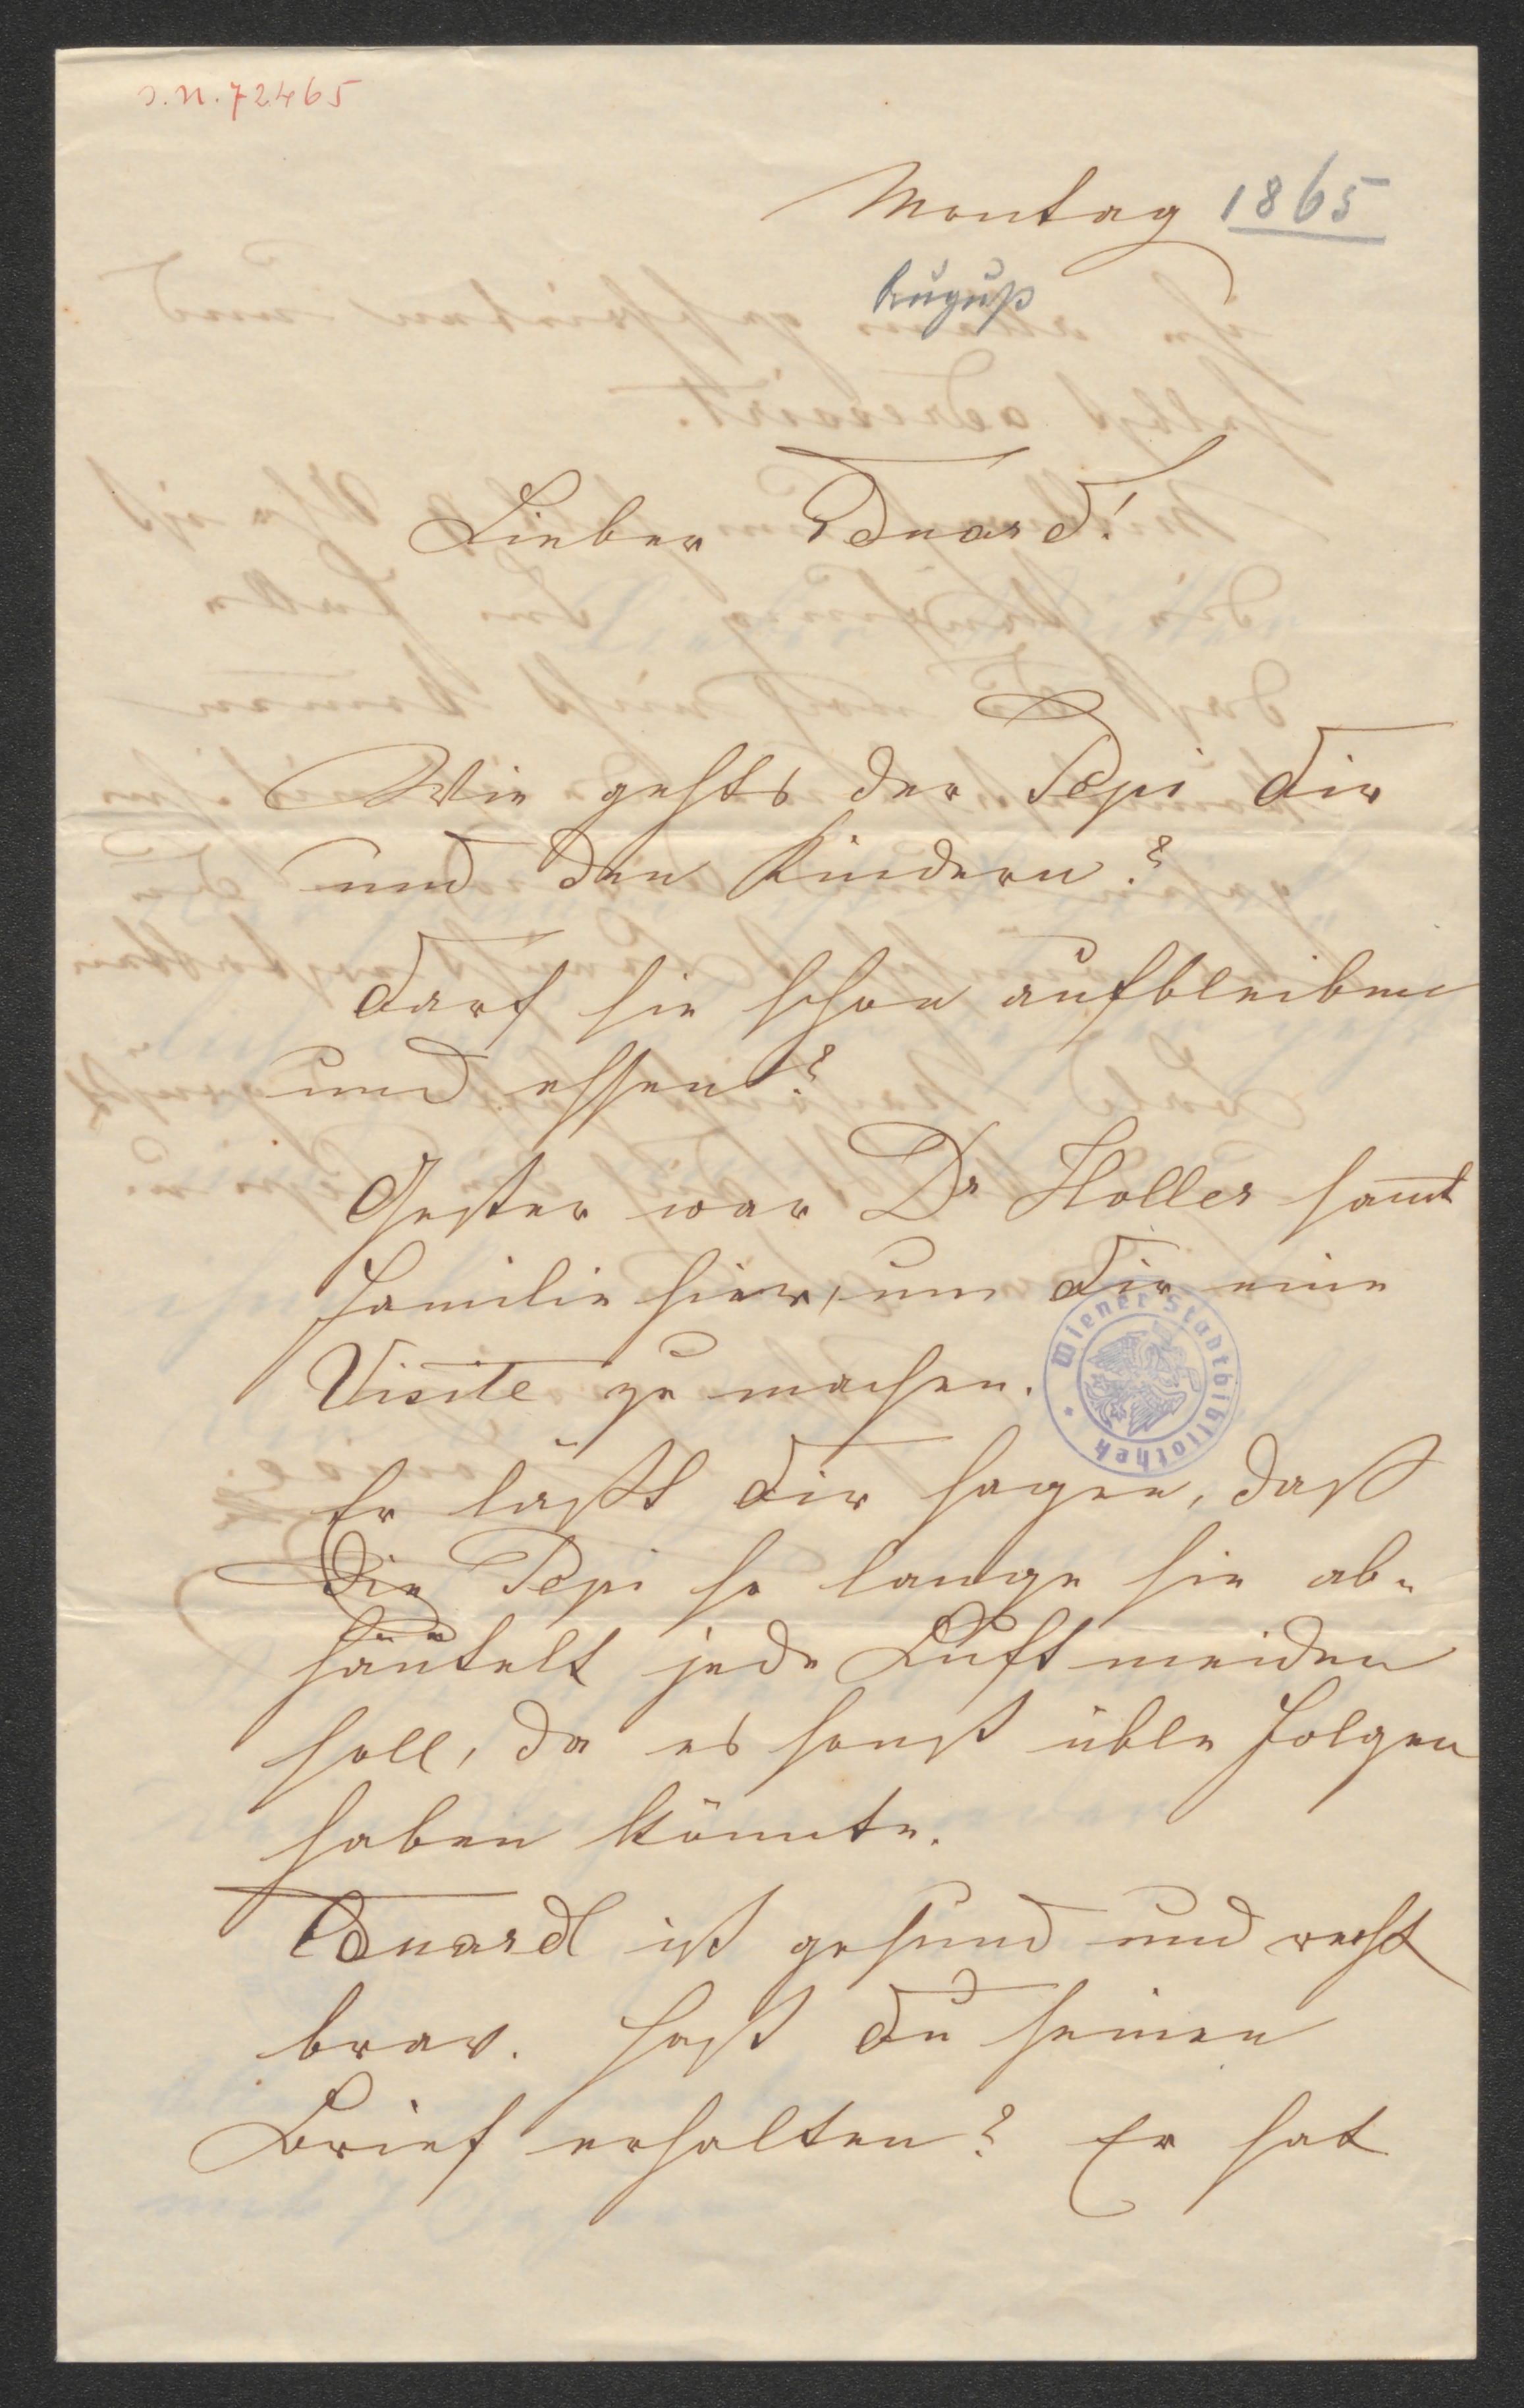 J.N. 72465
Montag 1865
August
Lieber Eduard!
Wie gehts der Pepi dir
und den Kindern?
Darf sie schon aufbleiben
und essen?
Gester war Dr Holler samt
Familie hier, um dir eine
Visite zu machen.
Wiener Stadtbibliothek
Er läßt dir sagen, daß
die Pepi so lange sie ab-
häutelt jede Luft meiden
soll, da es sonst üble Folgen
haben könnte.
Eduardl ist gesund und recht
brav. Hast du seinen
Brief erhalten? Er hat